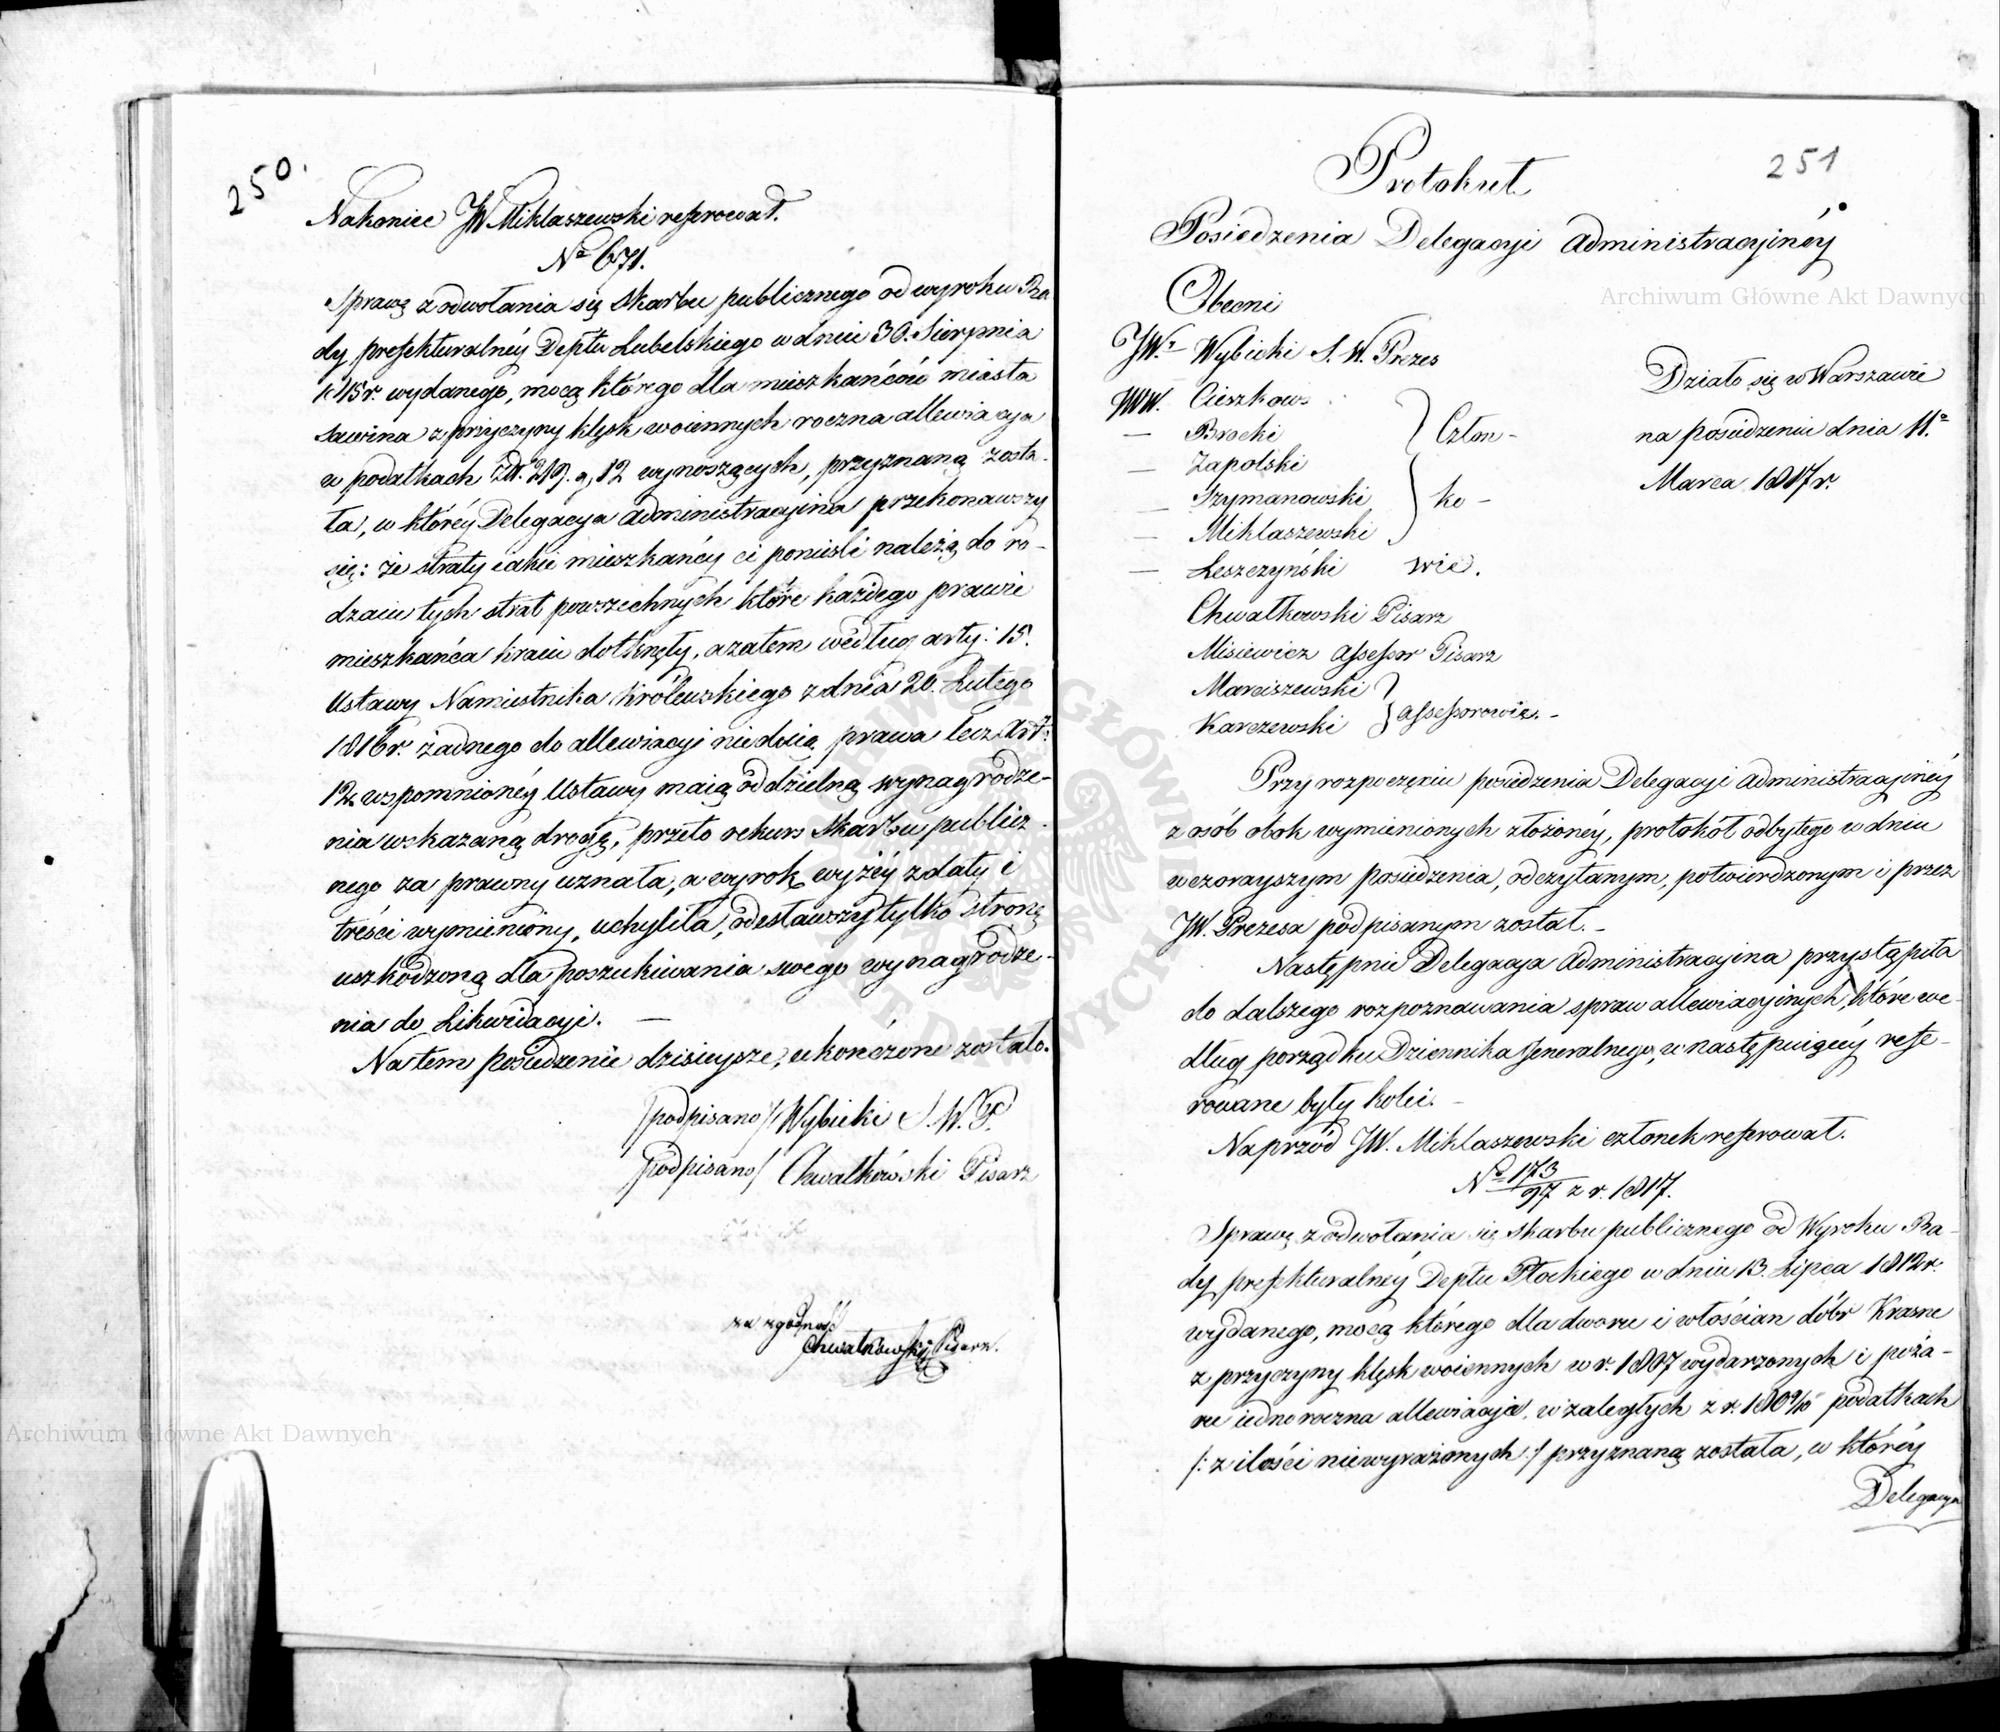 250.
Nakoniec JW Miklaszewski referował.
No 671.
Sprawę z odwołania się skarbu publicznego od wyroku Ra
dy prefekturalnéy Deptu Lubelskiego w dniu 30. Sierpnia
1815r. wydanego, mocą którego dla mieszkańców miasta
Sawina z przyczyny klęsk woiennych roczna allewiacya
w podatkach Zł. 219. g, 12 wynoszących, przyznaną zosta-
ła, w któréy Delegacya Administracyina przekonawszy
się: że straty iakie mieszkańcy ci ponieśli należą do ro-
dzaiu tych strat powszechnych które każdego prawie
mieszkańca kraiu dotknęły, a zatem według arty: 15.
Ustawy Namiestnika Królewskiego z dnia 20. Lutego
1816r. żadnego do allewiacyi nie daią prawa lecz Art:
12. wspomnionéy Ustawy maią oddzielną wynagrodze-
nia wskazaną drogę, przeto rekurs skarbu publicz-
nego za prawny uznała, a wyrok wyżéy z daty i
treści wymieniony, uchyliła, odestawszy tylko stronę
uszkodzoną dla poszukiwania swego wynagrodze-
nia do Likwidacyi. —
Na tem posiedzenie dzisieysze, ukończone zostało.
/podpisano/ Wybicki S. W. P.
/podpisano/ Chwalkowski Pisarz
za zgodność
Chwalkowski Pisarz.
251
Protokuł
Posiedzenia Delegacyi Administracyinéy
Obecni
JW. Wybicki S. W. Prezes
JWW. Cieszkows
— Brocki
— Zapolski
— Szymanowski
— Miklaszewski
— Leszczyński
Człon-
ko-
wie.
Chwalkowski Pisarz
Misiewicz Assessor Pisarz
Marciszewski
Karczewski
Assessorowie.-
Działo się w Warszawie
na posiedzeniu dnia 11.o
Marca 1817r.
Przy rozpoczęciu posiedzenia Delegacyi Administracyinéy
z osób obok wymienionych złożonéy, protokół odbytego w dniu
wczorayszym posiedzenia, odczytanym, potwierdzonym i przez
JW. Prezesa podpisanym został.-
Następnie Delegacya Administracyina przystąpiła
do dalszego rozpoznawania spraw allewiacyinych, które we-
dług porządku Dziennika Generalnego, w następuiącéy refe-
rowane były kolei.-
Naprzód JW. Miklaszewski członek referował.
No 173/97 z r. 1817.
Sprawę z odwołania się skarbu publicznego od Wyroku Ra-
dy prefekturalnéy Deptu Płockiego w dniu 13. Lipca 1812r.
wydanego, mocą którego dla dworu i włościan dóbr Krasne
z przyczyny klęsk woiennych w r. 1807 wydarzonych i poża-
ru iednoroczna allewiacya, w zaległych z r. 1809/10 podatkach
/: z ilości niewyrażonych :/ przyznaną została, w któréy
Delegacya
Archiwum Główne Akt Dawnych
Archiwum Główne Akt Dawnych